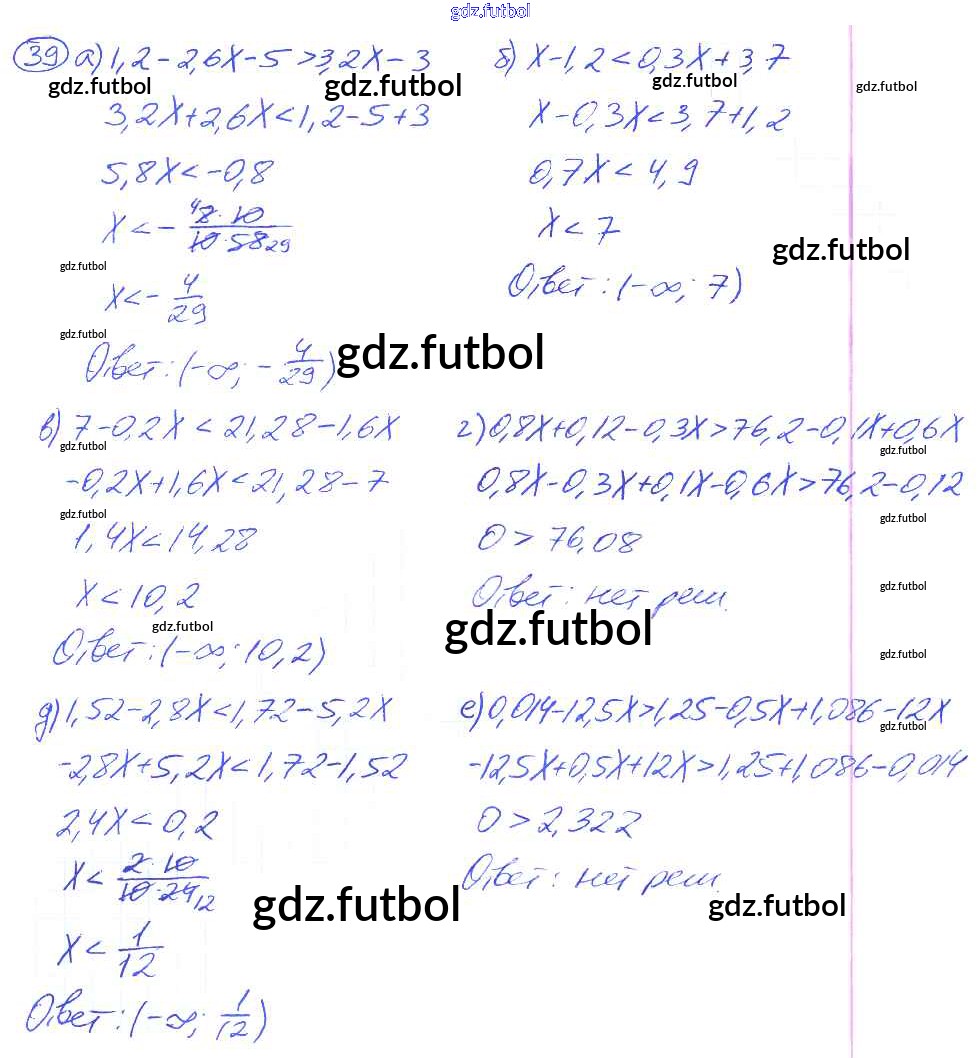 gdz.futbol
39 а) 1,2-2,6x-5>3,2x-3
gdz.futbol
gdz.futbol
3,2x+2,6x<1,2-5+3
5,8x<-0,8
x<- 4 8·10 / 10·58 29
gdz.futbol
x<- 4/29
gdz.futbol
Ответ: (-∞; - 4/29)
gdz.futbol
б) x-1,2<0,3x+3,7
gdz.futbol
gdz.futbol
x-0,3x<3,7+1,2
0,7x<4,9
x<7
gdz.futbol
Ответ: (-∞; 7)
в) 7-0,2x<21,28-1,6x
gdz.futbol
-0,2x+1,6x<21,28-7
gdz.futbol
1,4x<14,28
x<10,2
gdz.futbol
Ответ: (-∞; 10,2)
г) 0,8x+0,12-0,3x>76,2-0,1x+0,6x
gdz.futbol
0,8x-0,3x+0,1x-0,6x>76,2-0,12
gdz.futbol
0>76,08
gdz.futbol
Ответ: нет реш.
gdz.futbol
gdz.futbol
д) 1,52-2,8x<1,72-5,2x
-2,8x+5,2x<1,72-1,52
2,4x<0,2
x< 2·10 / 10·24 12
gdz.futbol
x< 1/12
Ответ: (-∞; 1/12)
е) 0,014-12,5x>1,25-0,5x+1,086-12x
gdz.futbol
-12,5x+0,5x+12x>1,25+1,086-0,014
0>2,322
Ответ: нет реш.
gdz.futbol